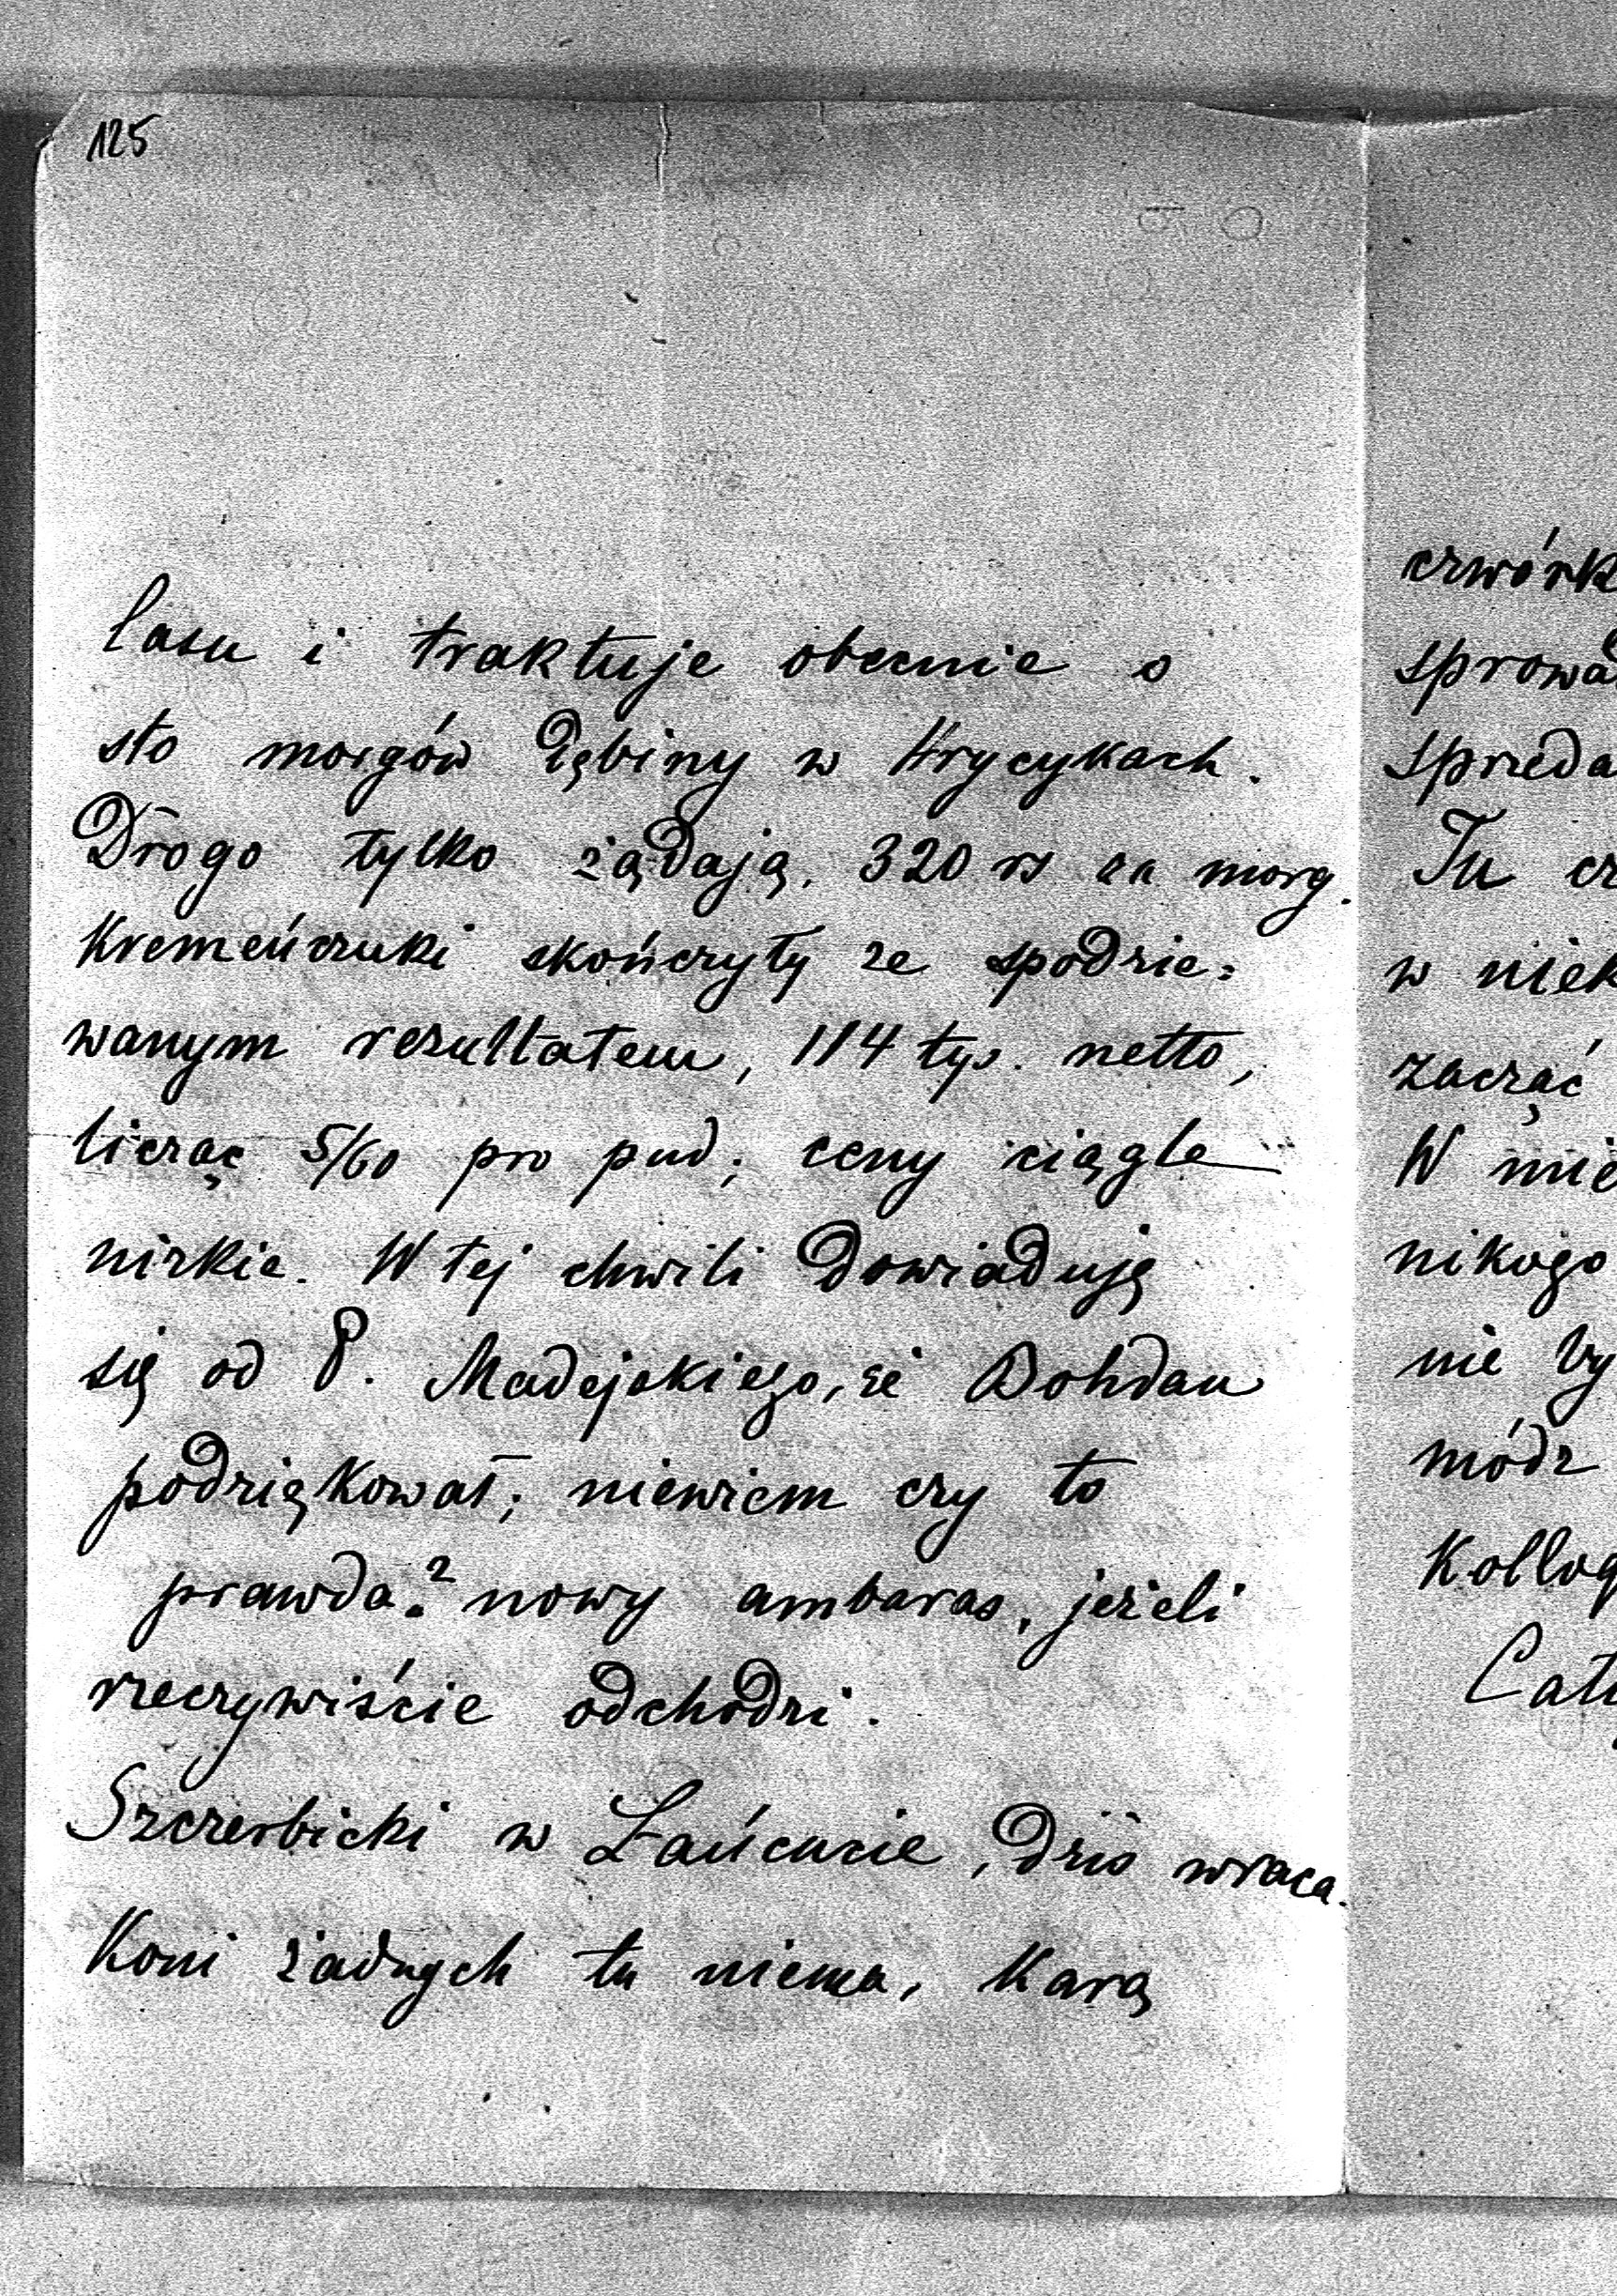 125
lasu i traktuje obecnie o
sto morgów Dębiny w Hrycykach.
Drogo tylko żądają, 320 rs za morg.
Kremeńczuki skończyły ze spodzie=
wanym rezultatem, 114 tys. netto,
licząc 5/60 pro pud; ceny ciągle
nizkie. W tej chwili dowiaduję
się od P. Madejskiego, że Bohdan
podziękował; niewiem czy to
prawda? nowy ambaras, jeżeli
rzeczywiście odchodzi.
Szczerbicki w Łańcucie, dziś wraca.
Koni żadnych tu niema, Karą
czwórk
sprowad
spreda
Tu cz
w niek
zacząć
W mie
nikogo
nie by
módz
Kolloq
Cału